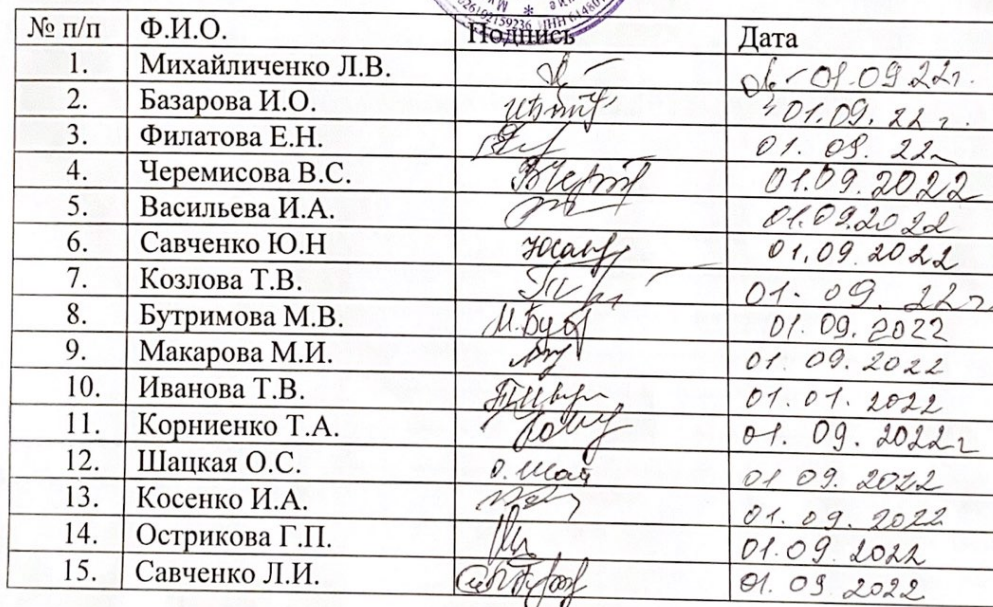 № п/п Ф.И.О. Подпись Дата
1. Михайличенко Л.В. 01.09 22г.
2. Базарова И.О. 01.09. 22 г.
3. Филатова Е.Н. 01. 09. 22г
4. Черемисова В.С. 01.09. 2022
5. Васильева И.А. 01.09.2022
6. Савченко Ю.Н 01.09. 2022
7. Козлова Т.В. 01. 09. 22г
8. Бутримова М.В. 01. 09. 2022
9. Макарова М.И. 01. 09. 2022
10. Иванова Т.В. 01. 01. 2022
11. Корниенко Т.А. 01. 09. 2022г
12. Шацкая О.С. 01 09. 2022
13. Косенко И.А. 01. 09. 2022
14. Острикова Г.П. 01.09. 2022
15. Савченко Л.И. 01. 09 2022